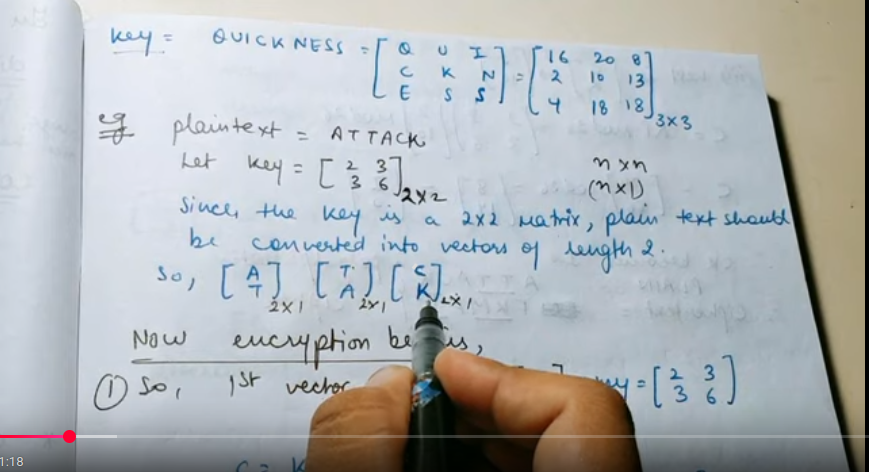 Key = QUICKNESS = [Q U I = [16 20 8
C K N 2 10 13
E S S] 4 18 18] 3x3
eg plaintext = ATTACK
Let key = [2 3 n x n
3 6] 2x2 (n x 1)
Since, the key is a 2x2 matrix, plain text should
be converted into vectors of length 2.
So, [A [T [C
T] 2x1 A] 2x1 K] 2x1
Now encryption
① So, 1st vector = [2 3
3 6]
1:18